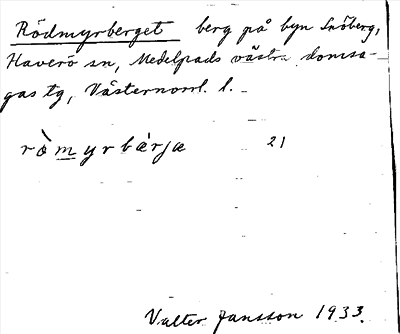 Rödmyrberget berg på byn Snöberg,
Haverö sn, Medelpads västra domsa-
gas tg, Västernorrl. l.
rò̀myrbǽrjæ 21
Valter Jansson 1933.